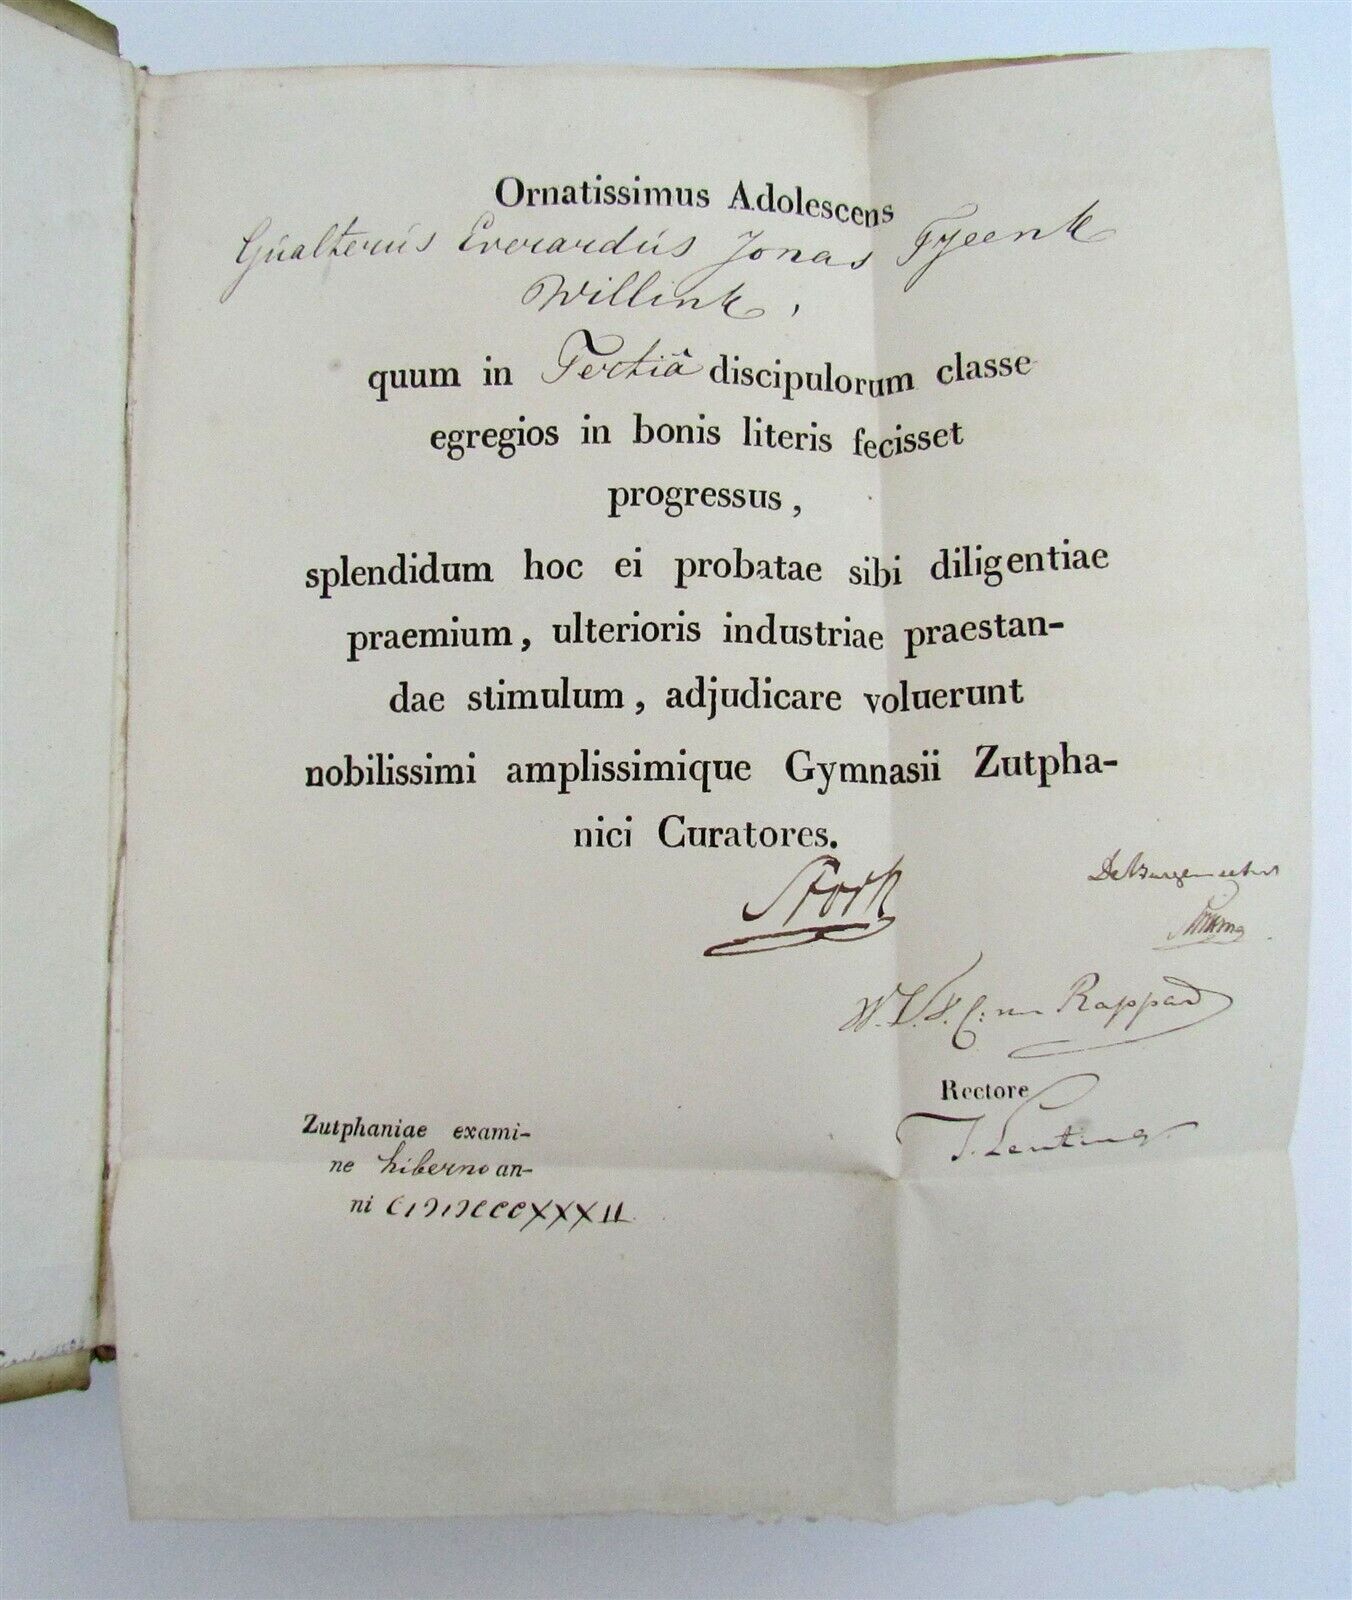 Ornatissimus Adolescens
Gualterus Everardus Jonas Tjeenk
Willink,
quum in Tertiâ discipulorum classe
egregios in bonis literis fecisset
progressus,
splendidum hoc ei probatae sibi diligentiae
praemium, ulterioris industriae praestan-
dae stimulum, adjudicare voluerunt
nobilissimi amplissimique Gymnasii Zutpha-
nici Curatores.
Stork
De Burgemeester
van Rappard
Rectore
J. Lenting.
Zutphaniae exami-
ne hiberno an-
ni CIƆIƆCCCXXXII.